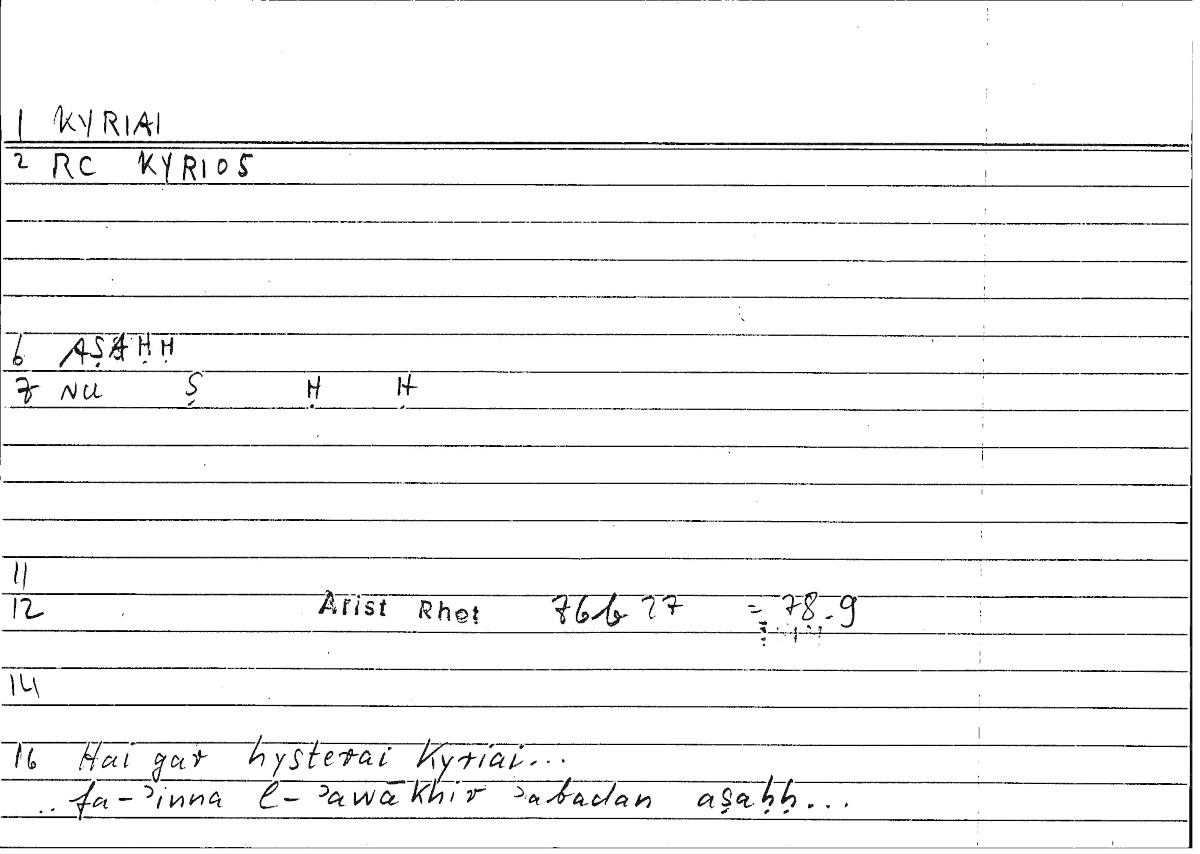 1 KYRIAI
2 RC KYRIOS
6 AṢAḤḤ
7 NU Ṣ Ḥ Ḥ
11
12 Arist Rhet 76b 27 = 78.9
14
16 Hai gar hysterai kyriai...
..fa-ʾinna l-ʾawākhir ʾabadan aṣaḥḥ...